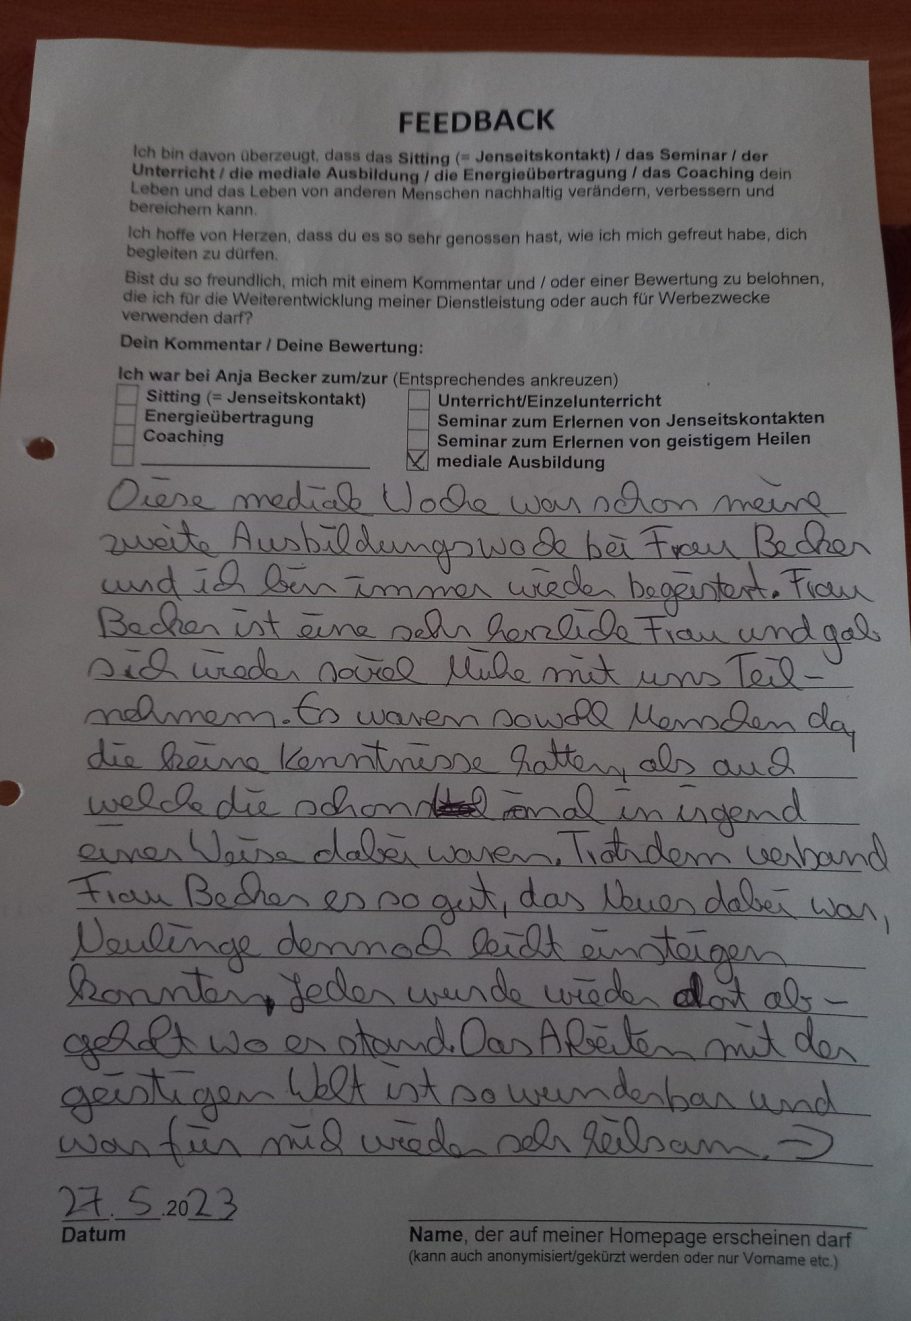 FEEDBACK
Ich bin davon überzeugt, dass das Sitting (= Jenseitskontakt) / das Seminar / der
Unterricht / die mediale Ausbildung / die Energieübertragung / das Coaching dein
Leben und das Leben von anderen Menschen nachhaltig verändern, verbessern und
bereichern kann.
Ich hoffe von Herzen, dass du es so sehr genossen hast, wie ich mich gefreut habe, dich
begleiten zu dürfen.
Bist du so freundlich, mich mit einem Kommentar und / oder einer Bewertung zu belohnen,
die ich für die Weiterentwicklung meiner Dienstleistung oder auch für Werbezwecke
verwenden darf?
Dein Kommentar / Deine Bewertung:
Ich war bei Anja Becker zum/zur (Entsprechendes ankreuzen)
Sitting (= Jenseitskontakt)
Energieübertragung
Coaching
Unterricht/Einzelunterricht
Seminar zum Erlernen von Jenseitskontakten
Seminar zum Erlernen von geistigem Heilen
mediale Ausbildung
Diese mediale Woche war schon meine
zweite Ausbildungswoche bei Frau Becker
und ich bin immer wieder begeistert. Frau
Becker ist eine sehr herzliche Frau und gab
sich wieder soviel Mühe mit uns Teil-
nehmern. Es waren sowohl Menschen da,
die keine Kenntnisse hatten, als auch
welche die schon mal in irgend
einer Weise dabei waren. Trotzdem verband
Frau Becker es so gut, das Neues dabei war,
Neulinge dennoch leicht einsteigen
konnten, Jeder wurde wieder dort ab-
geholt wo er stand. Das Arbeiten mit der
geistigen Welt ist so wunderbar und
war für mich wieder sehr heilsam. :-)
27.5.2023
Datum
Name, der auf meiner Homepage erscheinen darf
(kann auch anonymisiert/gekürzt werden oder nur Vorname etc.)